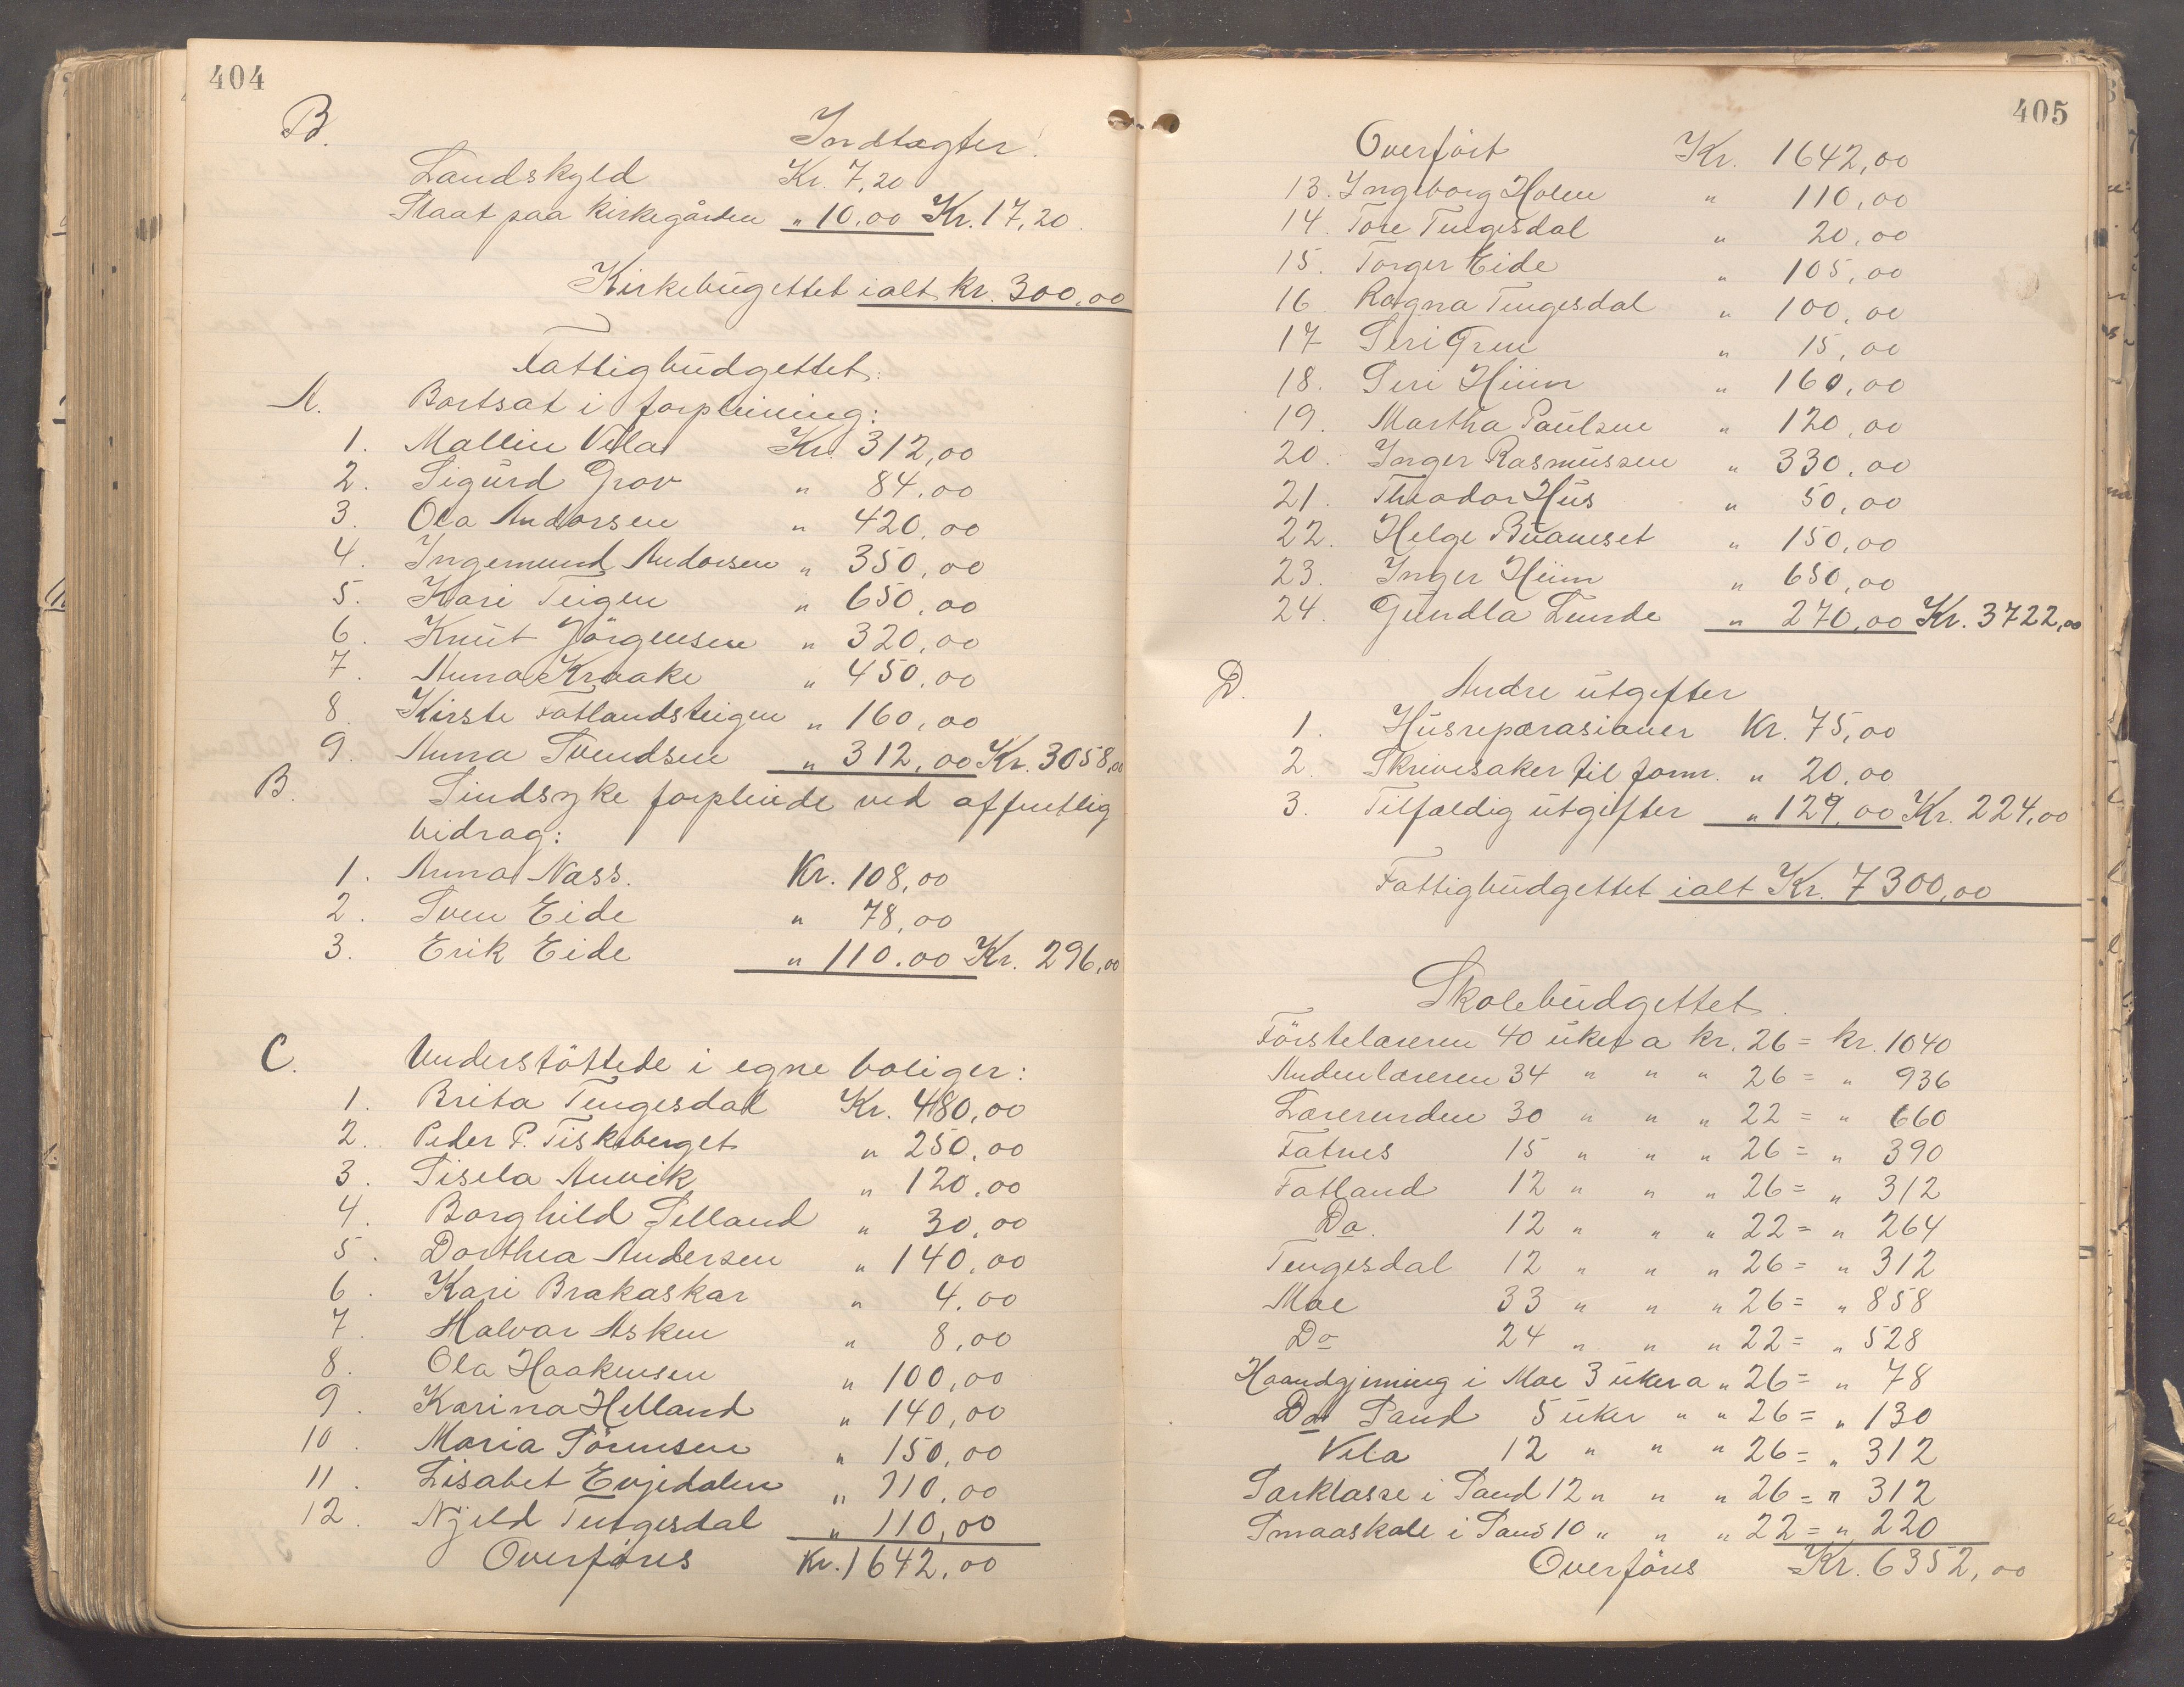 404
B. Indtægter.
Landskyld Kr. 7,20
Staat paa Kirkegården " 10,00 Kr. 17,20
Kirkebugettet ialt kr. 300,00
Fattigbudgettet:
A. Bortsat i forpleining:
1. Mallin Vela Kr. 312,00
2. Sigurd Grov " 84,00
3. Ola Andorsen " 420,00
4. Ingemund Andorsen " 350,00
5. Kari Teigen " 650,00
6. Knut Jörgensen " 320,00
7. Anna Kraake " 450,00
8. Kirste Fatlandsteigen " 160,00
9. Anna Svendsen " 312,00 Kr. 3058,00
B. Sindsyke forpleiede ved offentlig
bidrag:
1. Anna Næss. Kr. 108,00
2. Sven Eide " 78,00
3. Erik Eide " 110.00 Kr. 296,00
C. Understöttede i egne boliger:
1. Brita Tengesdal Kr. 480,00
2. Peder P. Fiskeberget " 250,00
3. Sisela Anvik " 120,00
4. Borghild Selland " 30,00
5. Dorthea Andersen " 140,00
6. Kari Brakaskar " 4,00
7. Halvor Asken " 8,00
8. Ola Haakensen " 100,00
9. Karina Helland " 140,00
10. Maria Sörensen " 150,00
11. Lisabet Evjedalen " 110,00
12. Njeld Tengesdal " 110,00
Overföres Kr. 1642,00
405
Overfört Kr. 1642,00
13. Ingeborg Holen " 110,00
14. Tore Tengesdal " 20,00
15. Torger Eide " 105,00
16. Ragna Tengesdal " 100,00
17 Seri Gren " 15,00
18. Seri Hiim " 160,00
19. Martha Paulsen " 120,00
20. Inger Rasmussen " 330,00
21. Theodor Hus " 50,00
22. Helge Buaneset " 150,00
23. Inger Hiim " 650,00
24. Gundla Lunde " 270,00 Kr. 3722,00
D. Andre utgifter
1. Husreparasioner Kr. 75,00
2. Skrivesaker til form. " 20,00
3. Tilfældig utgifter " 129,00 Kr. 224,00
Fattigbudgettet ialt Kr. 7300,00
Skolebudgettet.
Förstelæreren 40 uker a kr. 26 = kr. 1040
Andenlæreren 34 " " " 26 = " 936
Lærerinden 30 " " " 22 = " 660
Fatnes 15 " " " 26 = " 390
Fatland 12 " " " 26 = " 312
Do. 12 " " " 22 = " 264
Tengesdal 12 " " " 26 = " 312
Moe 33 " " " 26 = " 858
Do 24 " " " 22 = " 528
Haandgjerning i Moe 3 uker a " 26 = " 78
Do Sand 5 uker " " 26 = " 130
Vela 12 " " " 26 = " 312
Særklasse i Sand 12 " " " 26 = " 312
Smaaskole i Sand 10 " " " 22 = " 220
Overföres Kr. 6352,00